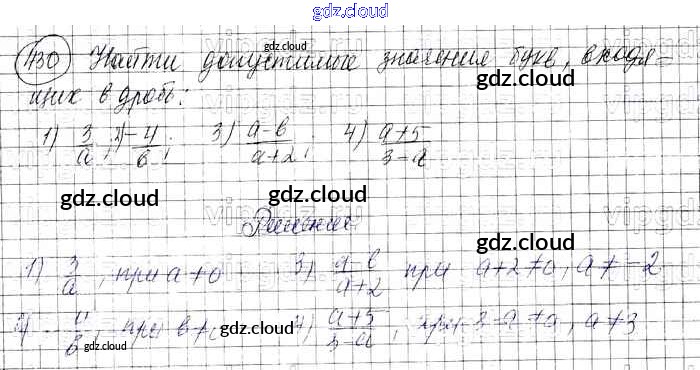 gdz.cloud
430 Найти допустимые значения букв, входя-
щих в дробь:
1) 3/a; 2) -4/b; 3) a-b/a+2; 4) a+5/3-a
gdz.cloud
gdz.cloud
Решение
1) 3/a, при a≠0 3) a-b/a+2 при a+2≠0, a≠-2
2) -4/b, при b≠0 4) a+5/3-a, при 3-a≠0, a≠3
gdz.cloud